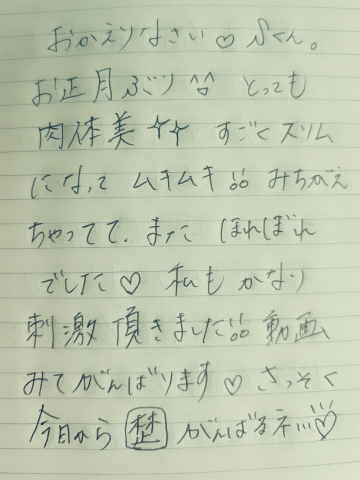 おかえりなさい♡ Sくん。
お正月ぶり^^ とっても
肉体美☆☆ すごくスリム
になって ムキムキ!! みちがえ
ちゃってて、また ほれぼれ
でした♡ 私も かなり
刺激 頂きました!! 動画
みて がんばります♡ さっそく
今日から がんばるネ!!!♡